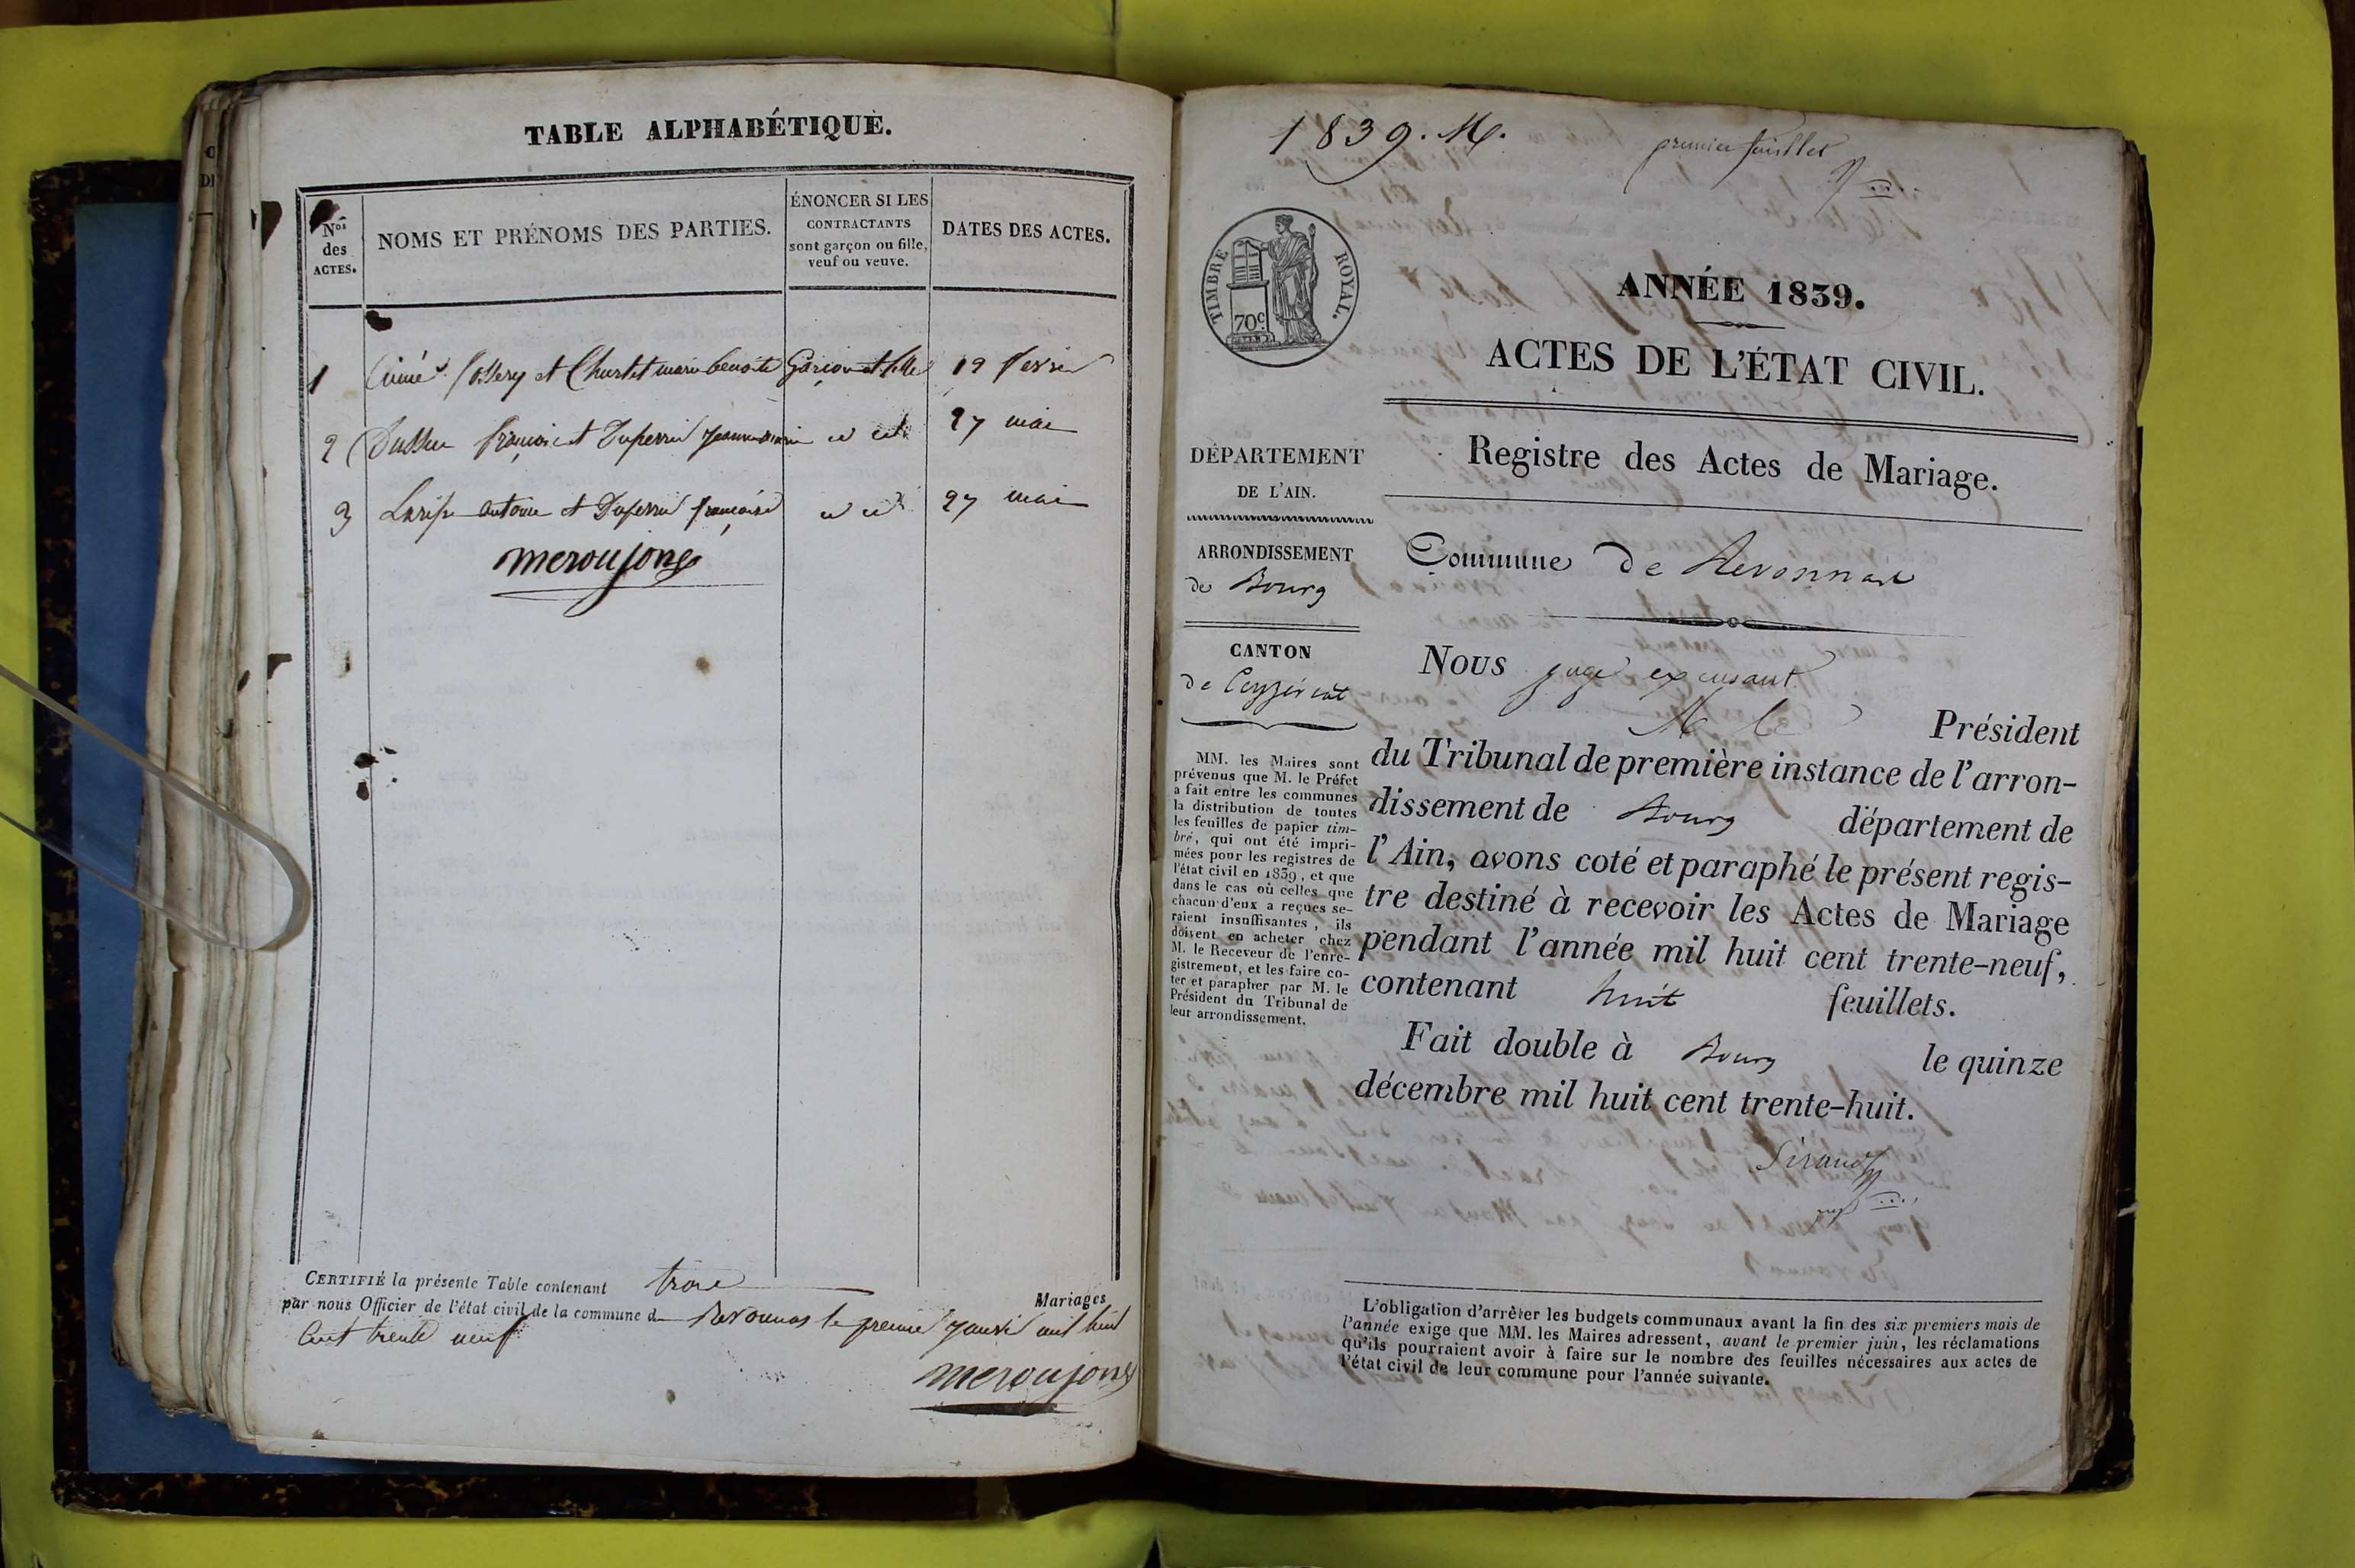 TABLE ALPHABÉTIQUE.
Nos des ACTES.
NOMS ET PRÉNOMS DES PARTIES.
ÉNONCER SI LES CONTRACTANTS sont garçon ou fille, veuf ou veuve.
DATES DES ACTES.
1 et marie benoite Garçon et fille 19
2 françois et Duperrui jeanne marie 27 mai
3 antoine et Duperrui françoise 27 mai
meroujong
CERTIFIÉ la présente Table contenant trois Mariages
par nous Officier de l'état civil de la commune d le premier mil huit
Cent trente neuf
meroujong
1839. M.
premier feuillet
TIMBRE ROYAL.
70c
ANNÉE 1839.
ACTES DE L'ÉTAT CIVIL.
Registre des Actes de Mariage.
DÉPARTEMENT
DE L'AIN.
ARRONDISSEMENT
de Bourg
CANTON
de Ceyzériat
MM. les Maires sont
prévenus que M. le Préfet
a fait entre les communes
la distribution de toutes
les feuilles de papier tim-
bré, qui ont été impri-
mées pour les registres de
l'état civil en 1839, et que
dans le cas où celles que
chacun d'eux a reçues se-
raient insuffisantes, ils
doivent en acheter chez
M. le Receveur de l'enre-
gistrement, et les faire co-
ter et parapher par M. le
Président du Tribunal de
leur arrondissement.
Commune de Revonnas
Nous juge
M. le Président
du Tribunal de première instance de l'arron-
dissement de Bourg département de
l'Ain, avons coté et paraphé le présent regis-
tre destiné à recevoir les Actes de Mariage
pendant l'année mil huit cent trente-neuf,
contenant huit feuillets.
Fait double à Bourg le quinze
décembre mil huit cent trente-huit.
L'obligation d'arrêter les budgets communaux avant la fin des six premiers mois de
l'année exige que MM. les Maires adressent, avant le premier juin, les réclamations
qu'ils pourraient avoir à faire sur le nombre des feuilles nécessaires aux actes de
l'état civil de leur commune pour l'année suivante.